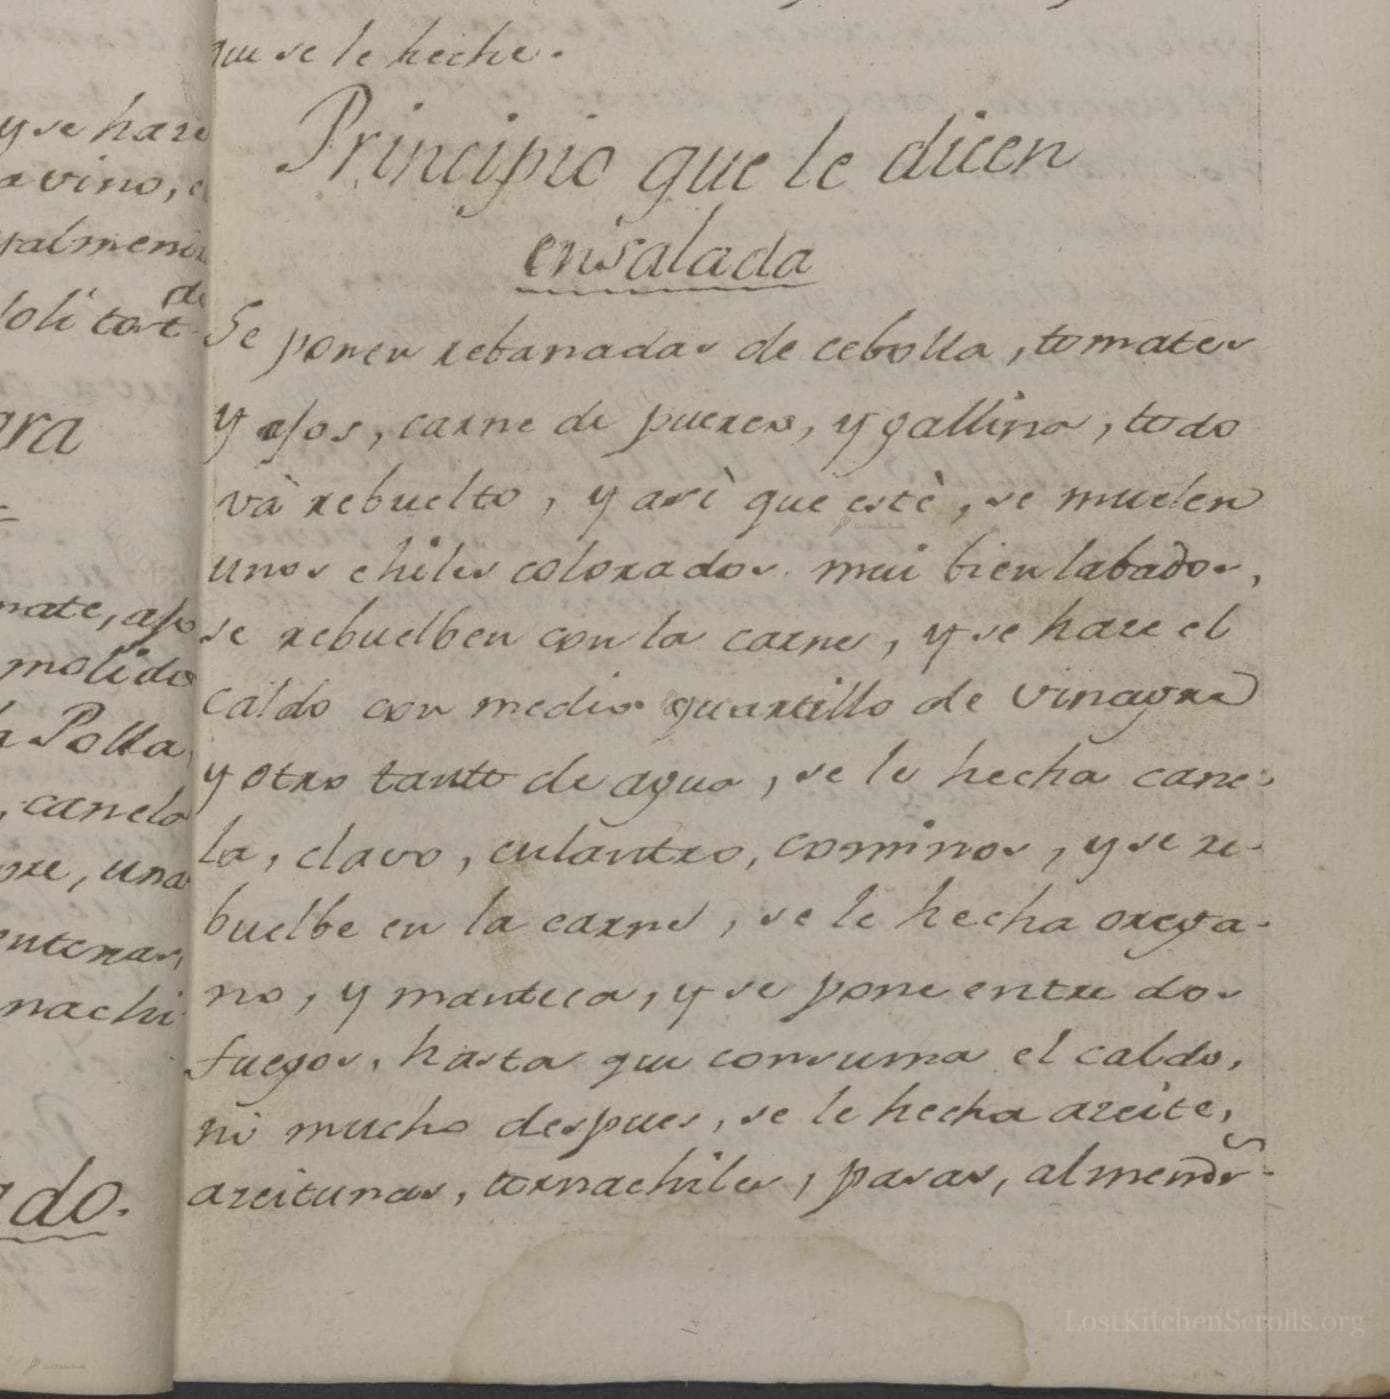 y se hace
a vino, e
palmenia
de
loli tort
ara
mate, ajo
molido
la Polla,
, canela
bre, una
entenas,
nachi
ado.
que se le heche.
Principio que le dicen
ensalada
Se ponen rebanadas de cebolla, tomates
y ajos, carne de puerco, y gallina, todo
và rebuelto, y asì que estè, se muelen
unos chiles colorados mui bien labados,
se rebuelben con la carne, y se hace el
caldo con medio quartillo de vinagre
y otro tanto de agua, se le hecha cane-
la, clavo, culantro, cominos, y se re-
buelbe en la carne, se le hecha orega-
no, y manteca, y se pone entre dos
fuegos, hasta que consuma el caldo,
ni mucho despues, se le hecha azeite,
azeitunas, tornachiles, pasas, almends-
LostKitchenScrolls.org